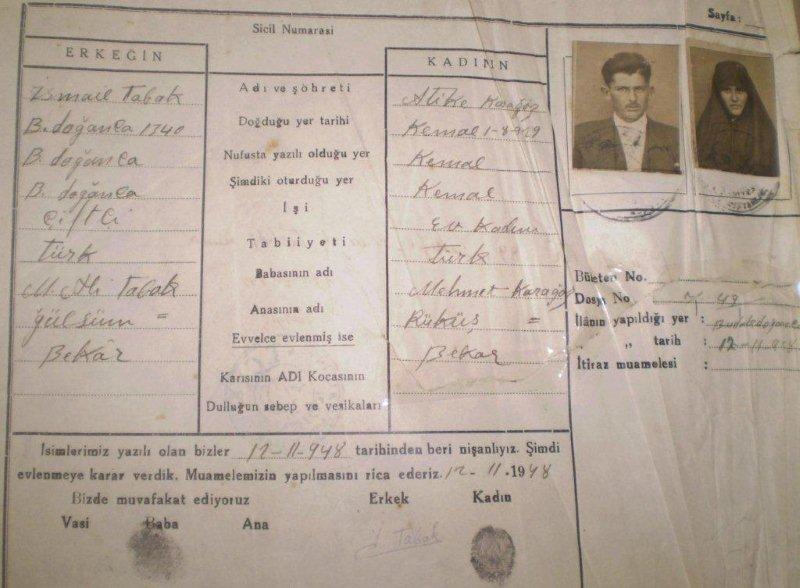 Sayfa:
Sicil Numarası
ERKEĞİN
KADININ
İsmael Tabak Adı ve şöhreti Atike Karagöz
B. doğanca 1340 Doğduğu yer tarihi Kemal 1-8-929
B. doğanca Nufusta yazılı olduğu yer Kemal
B. doğanca Şimdiki oturduğu yer Kemal
Çiftci İşi Ev Kadını
Türk Tabiiyeti Türk
M. Ali Tabak Babasının adı Mehmet Karagöz
gülsüm = Anasının adı Rükûş =
Bekâr Evvelce evlenmiş ise Bekâr
Karısının ADI Kocasının
Dulluğun sebep ve vesikaları
Büeten No.
Dosya No. 49
İlânın yapıldığı yer :
" " tarih : 12-11-948
İtiraz muamelesi :
İsimlerimiz yazılı olan bizler 12-11-948 tarihinden beri nişanlıyız. Şimdi
evlenmeye karar verdik. Muamelemizin yapılmasını rica ederiz. 12-11-1948
Bizde muvafakat ediyoruz Erkek Kadın
Vasi Baba Ana
İ. Tabak